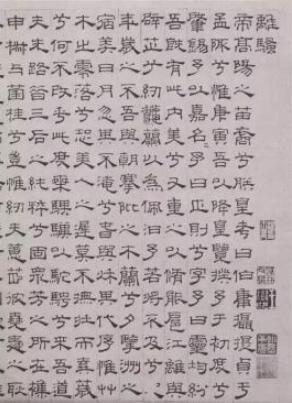 離騷
帝高陽之苗裔兮朕皇考曰伯庸攝提貞于
孟陬兮惟庚寅吾以降皇覽揆予于初度兮
肇錫予以嘉名予曰正則兮字予曰靈均紛
吾既有此內美兮又重之以脩能扈江離與
辟芷兮紉龝蘭以為佩汨予若將不及兮恐
年歲之不吾與朝搴阰之木蘭兮夕擥洲之
宿莽日月忽其不淹兮春與秋其代序惟艸
木之零落兮恐美人之遲莫不撫壯而棄穢
兮何不改乎此度乘騏驥以馳騁兮來吾道
夫先路昔三后之純粹兮固眾芳之所在雜
申椒與菌桂兮豈惟紉夫蕙茝彼堯舜之耿